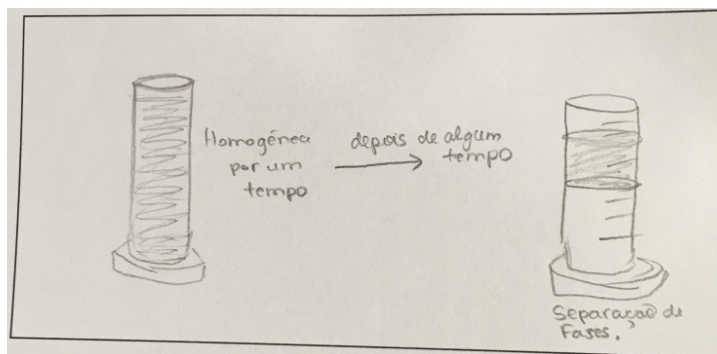 Homogénea
por um
tempo
depois de algum
tempo
Separação de
Fases.